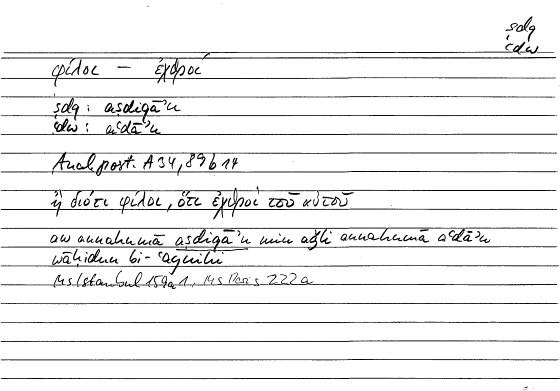 ṣdq
ʿdw
φίλοι — ἐχθροί
ṣdq : aṣdiqāʾu
ʿdw : aʿdāʾu
Anal. post. A 34, 89 b 14
ἢ διότι φίλοι, ὅτι ἐχθροὶ τοῦ αὐτοῦ
aw annahumā aṣdiqāʾu min aǧli annahumā aʿdāʾu
wāḥidun bi-ʿaynihi
Ms Istanbul 159a1, Ms Paris 222a